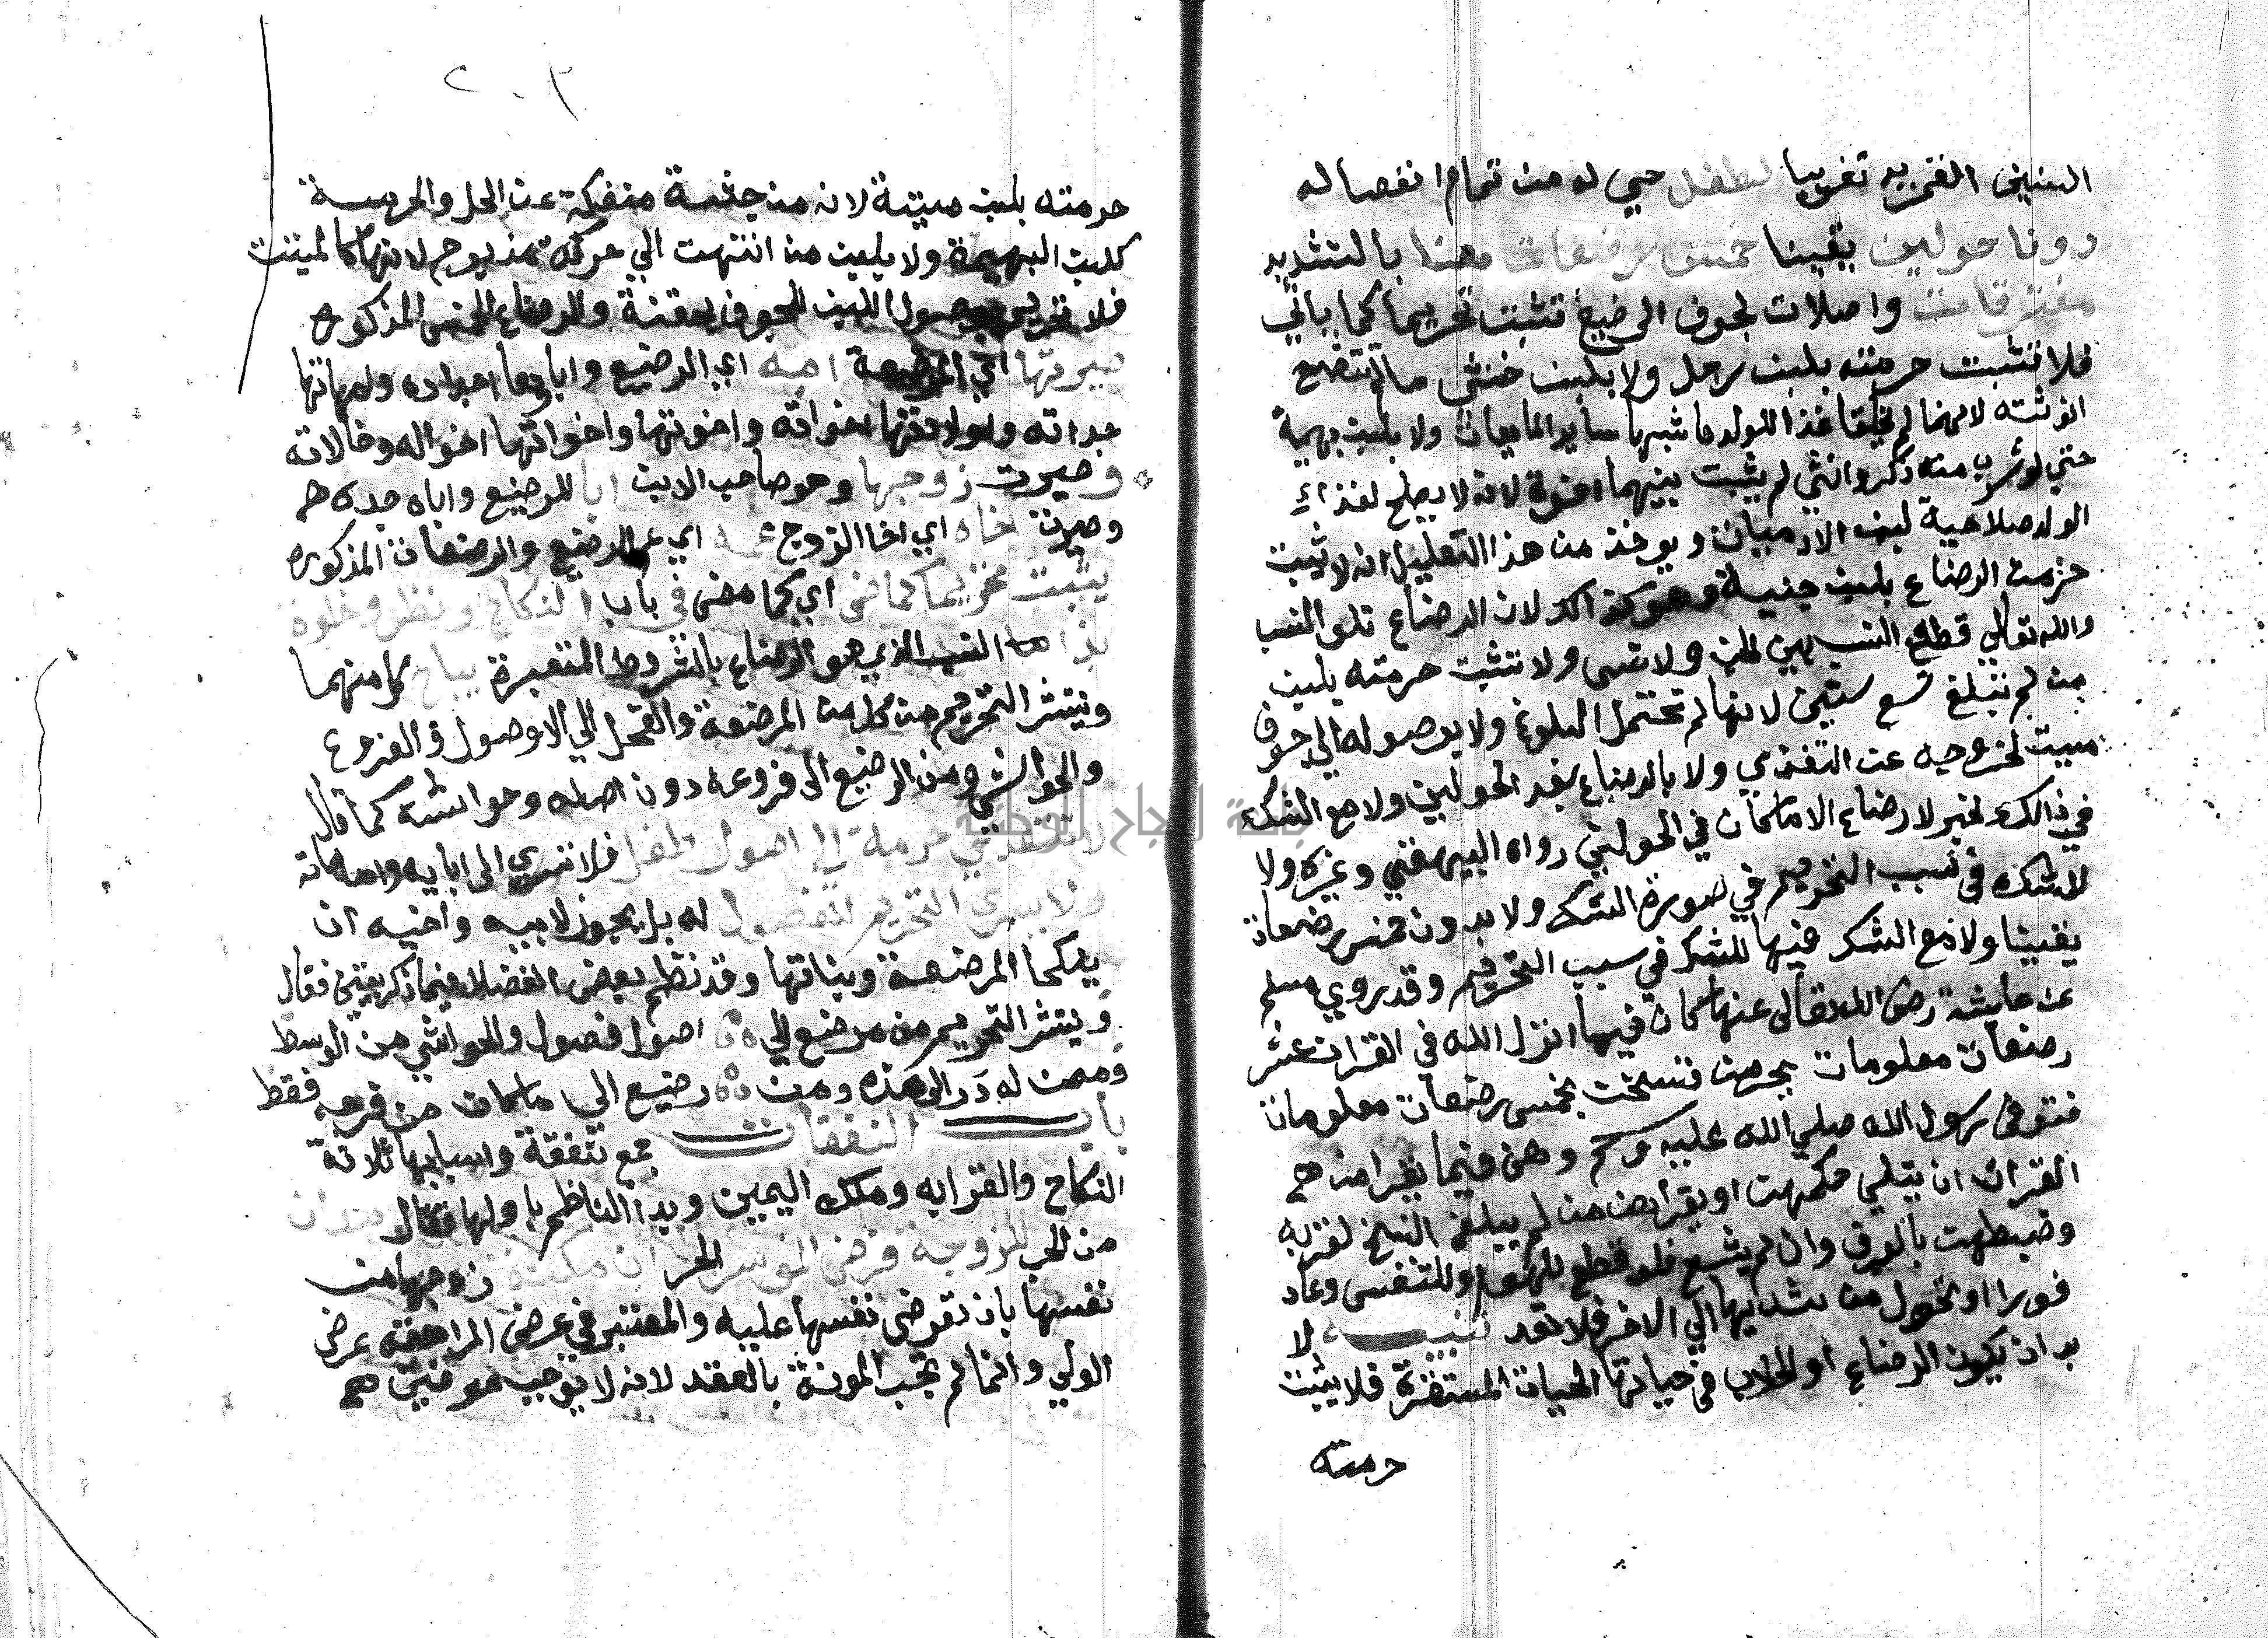 السنين القمريه تقريبا لطفل حي له من تمام انفصاله
دون حولين يقينا خمس رضعات هنا بالتشديد
متفرقات واصلات لجوف الرضيع تثبت تحريما كما ياتي
فلا تثبت حرمته بلبن رجل ولا بلبن خنثى ما لم تتضح
انوثته لانهما لم يخلقا غذا للولد فاشبها ساير المايعات ولا بلبن بهيمة
حتي لو شرب منه ذكر وانثي لم يثبت بينهما اخوة لانه لا يصلح لغذاء
الولد صلاحية لبن الادميات ويوخذ من هذا التعليل انه لا تثبت
حرمت الرضاع بلبن جنية وهو كذالك لان الرضاع تلو النسب
والله تعالي قطع النسب بين الجن والانس ولا تثبت حرمته بلبن
من لم تبلغ تسع سنين لانها لم تحتمل البلوغ ولا بوصوله الي جوف
ميت لخروجه عن التغذي ولا بالرضاع بعد الحولين ولا مع الشك
في ذالك لخبر لا رضاع الا ما كان في الحولين رواه البيهقي وغيره ولا
للشك في سبب التحريم في صورة الشك ولا بدون خمس رضعات
يقينا ولا مع الشك فيها للشك في سبب التحريم وقد روي مسلم
عن عايشة رضي الله تعالى عنها كان فيما انزل الله في القران عشر
رضعات معلومات يحرمن فنسخت بخمس رضعات معلومات
فتوفى رسول الله صلي الله عليه وسلم وهن فيما يقرا من
القران ان يتلي حكمهن او يقرأهن من لم يبلغه النسخ لقربه
وضبطهن بالعرف وان لم يشبع فلو قطع للهو او للتنفس وعاد
فورا او تحول من ثديها الي الاخر فلا تعد تنبيه لا
بد ان يكون الرضاع او الحلاب في حياتها الحياة المستقرة فلا يثبت
حرمته
٢٠٣
حرمته بلبن ميتة لانه من جثة منفكة عن الحل والحرمة
كلبن البهيمة ولا بلبن من انتهت الي حركة مذبوح لانها كالميتت
فلا تحريم بوصول اللبن للجوف بحقنة والرضاع الخمس المذكوره
صيرتها اي المرضعة امه اي الرضيع واباوها اجداده وامهاتها
جداته واولادها اخواته واخوتها واخواتها اخواله وخالاته
وصيرت زوجها وهو صاحب الابن ابا للرضيع واباه جده
وصيرت اخاه اي اخا الزوج عمه اي عم الرضيع والرضعات المذكوره
يثبت تحريما كما مضى اي كما مضى في باب النكاح ونظر وخلوة
بذا من النسب الذي هو الرضاع بالشروط المعتبرة يباح كل منهما
وينتشر التحريم من كل من المرضعة والفحل الي الاوصول والفروع
والحواشي ومن الرضيع الى فروعه دون اصله وحواشيه كما قال
لا تتعدي حرمة الى اصول طفل فلا تسري الى ابايه وامهاته
ولا يسري التحريم لفصول له بل يجوز لابيه واخيه ان
ينكحا المرضعة وبناتها وقد نظم بعض الفضلا فيما ذكر بيتين فقال
وينتشر التحريم من مرضع الي اصول فصول والحواشي من الوسط
وممن له در الى هذه ومن رضيع الي ما كان من فرعه فقط
باب النفقات جمع نفقة واسبابها ثلاثة
النكاح والقرابه وملك اليمين وبدا الناظم باولها فقال مدان
من الحب للزوجة فرض الموسر الحر ان مكنت زوجها من
نفسها بان تعرض نفسها عليه والمعتبر في عرض المراهقه عرض
الولي وانما لم تجب المونة بالعقد لانه لا يوجب عوضين